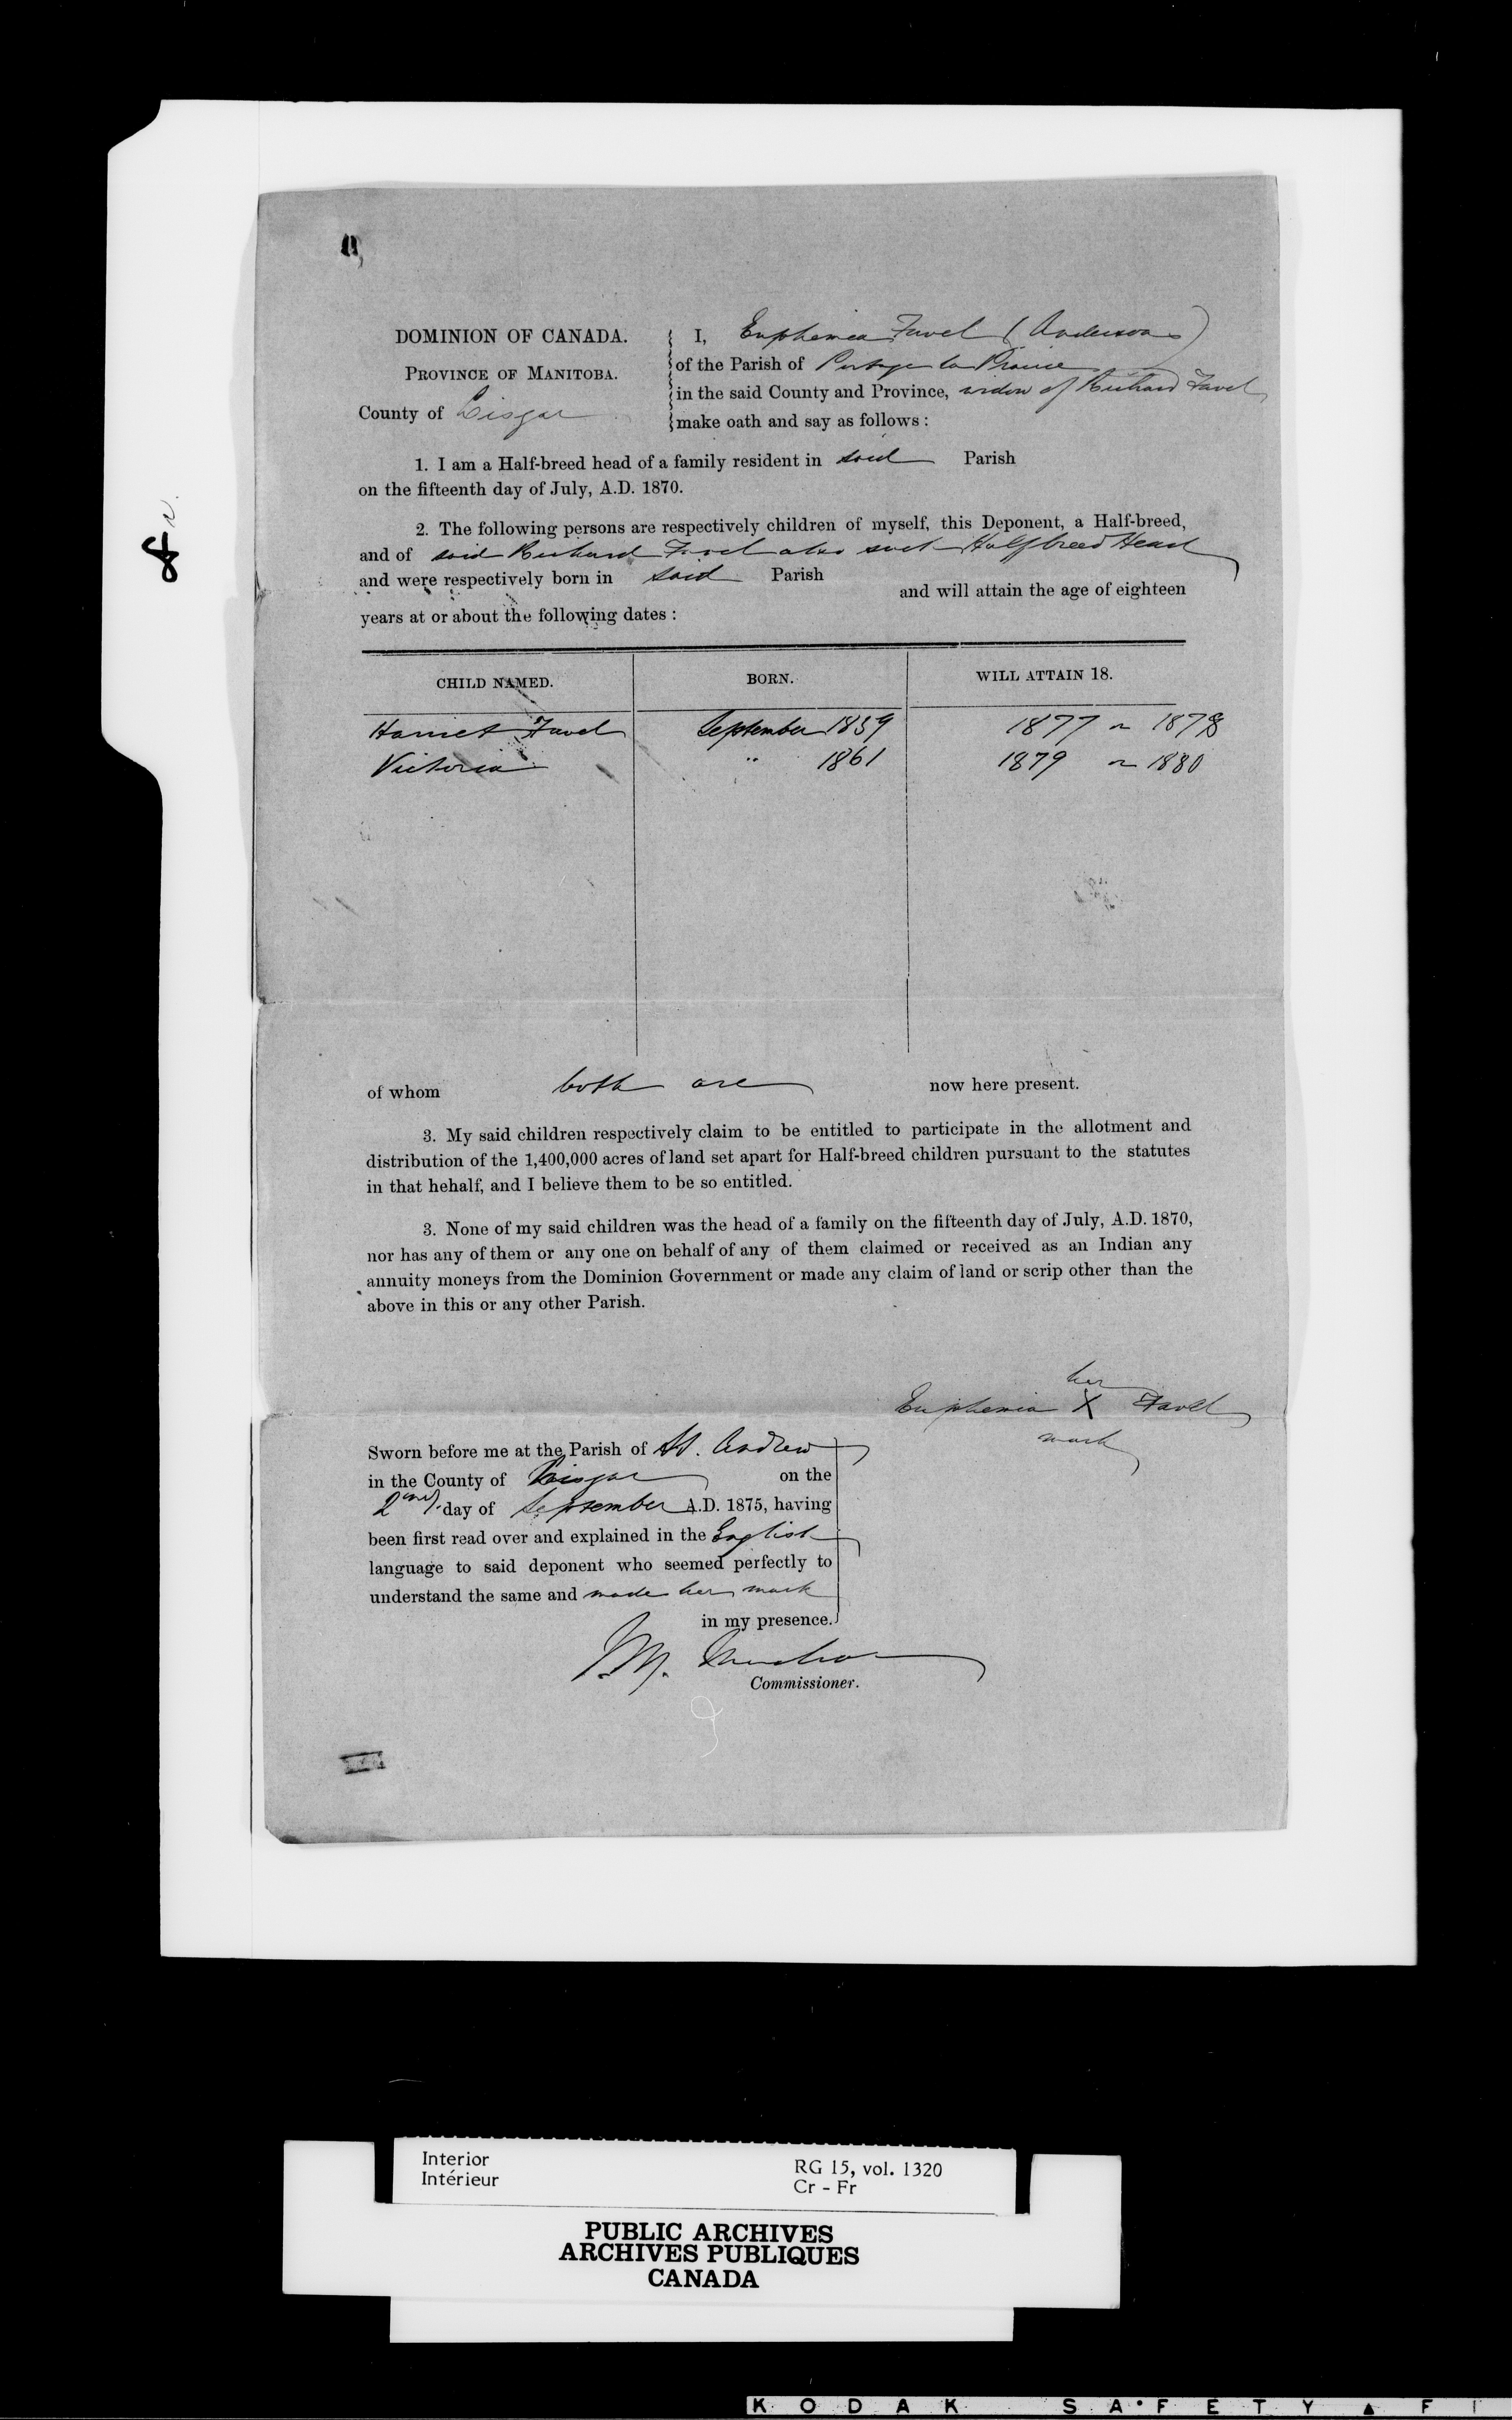 DOMINION OF CANADA.
PROVINCE OF MANITOBA.
County of Lisgar
I, Euphemia Favel (Anderson)
of the Parish of Portage la Prairie
in the said County and Province, widow of Richard Favel
make oath and say as follows :
1. I am a Half-breed head of a family resident in said Parish
on the fifteenth day of July, A.D. 1870.
2. The following persons are respectively children of myself, this Deponent, a Half-breed,
and of said Richard Favel also such Halfbreed Head
and were respectively born in said Parish
and will attain the age of eighteen
years at or about the following dates :
CHILD NAMED. BORN. WILL ATTAIN 18.
Harriet Favel September 1859 1877 or 1878
Victoria " 1861 1879 or 1880
of whom both are now here present.
3. My said children respectively claim to be entitled to participate in the allotment and
distribution of the 1,400,000 acres of land set apart for Half-breed children pursuant to the statutes
in that hehalf, and I believe them to be so entitled.
3. None of my said children was the head of a family on the fifteenth day of July, A.D. 1870,
nor has any of them or any one on behalf of any of them claimed or received as an Indian any
annuity moneys from the Dominion Government or made any claim of land or scrip other than the
above in this or any other Parish.
her
Euphemia X Favel
mark
Sworn before me at the Parish of St. Andrew
in the County of Lisgar on the
2nd day of September A.D. 1875, having
been first read over and explained in the English
language to said deponent who seemed perfectly to
understand the same and made her mark
in my presence.
Commissioner.
Interior
Intérieur
RG 15, vol. 1320
Cr - Fr
PUBLIC ARCHIVES
ARCHIVES PUBLIQUES
CANADA
KODAK SAFETY FI